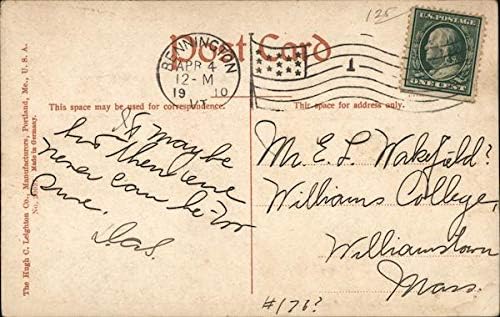 125
Post Card
U.S. POSTAGE
ONE CENT
BENNINGTON
APR 4
12-M
1910
VT.
1
This space may be used for correspondence.
This space for address only.
It may be
but then one
never can be too
sure.
Mr. E. L. Wakefield?
Williams College,
Williamstown
Mass.
#176?
The Hugh C. Leighton Co., Manufacturers, Portland, Me., U. S. A.
Made in Germany.